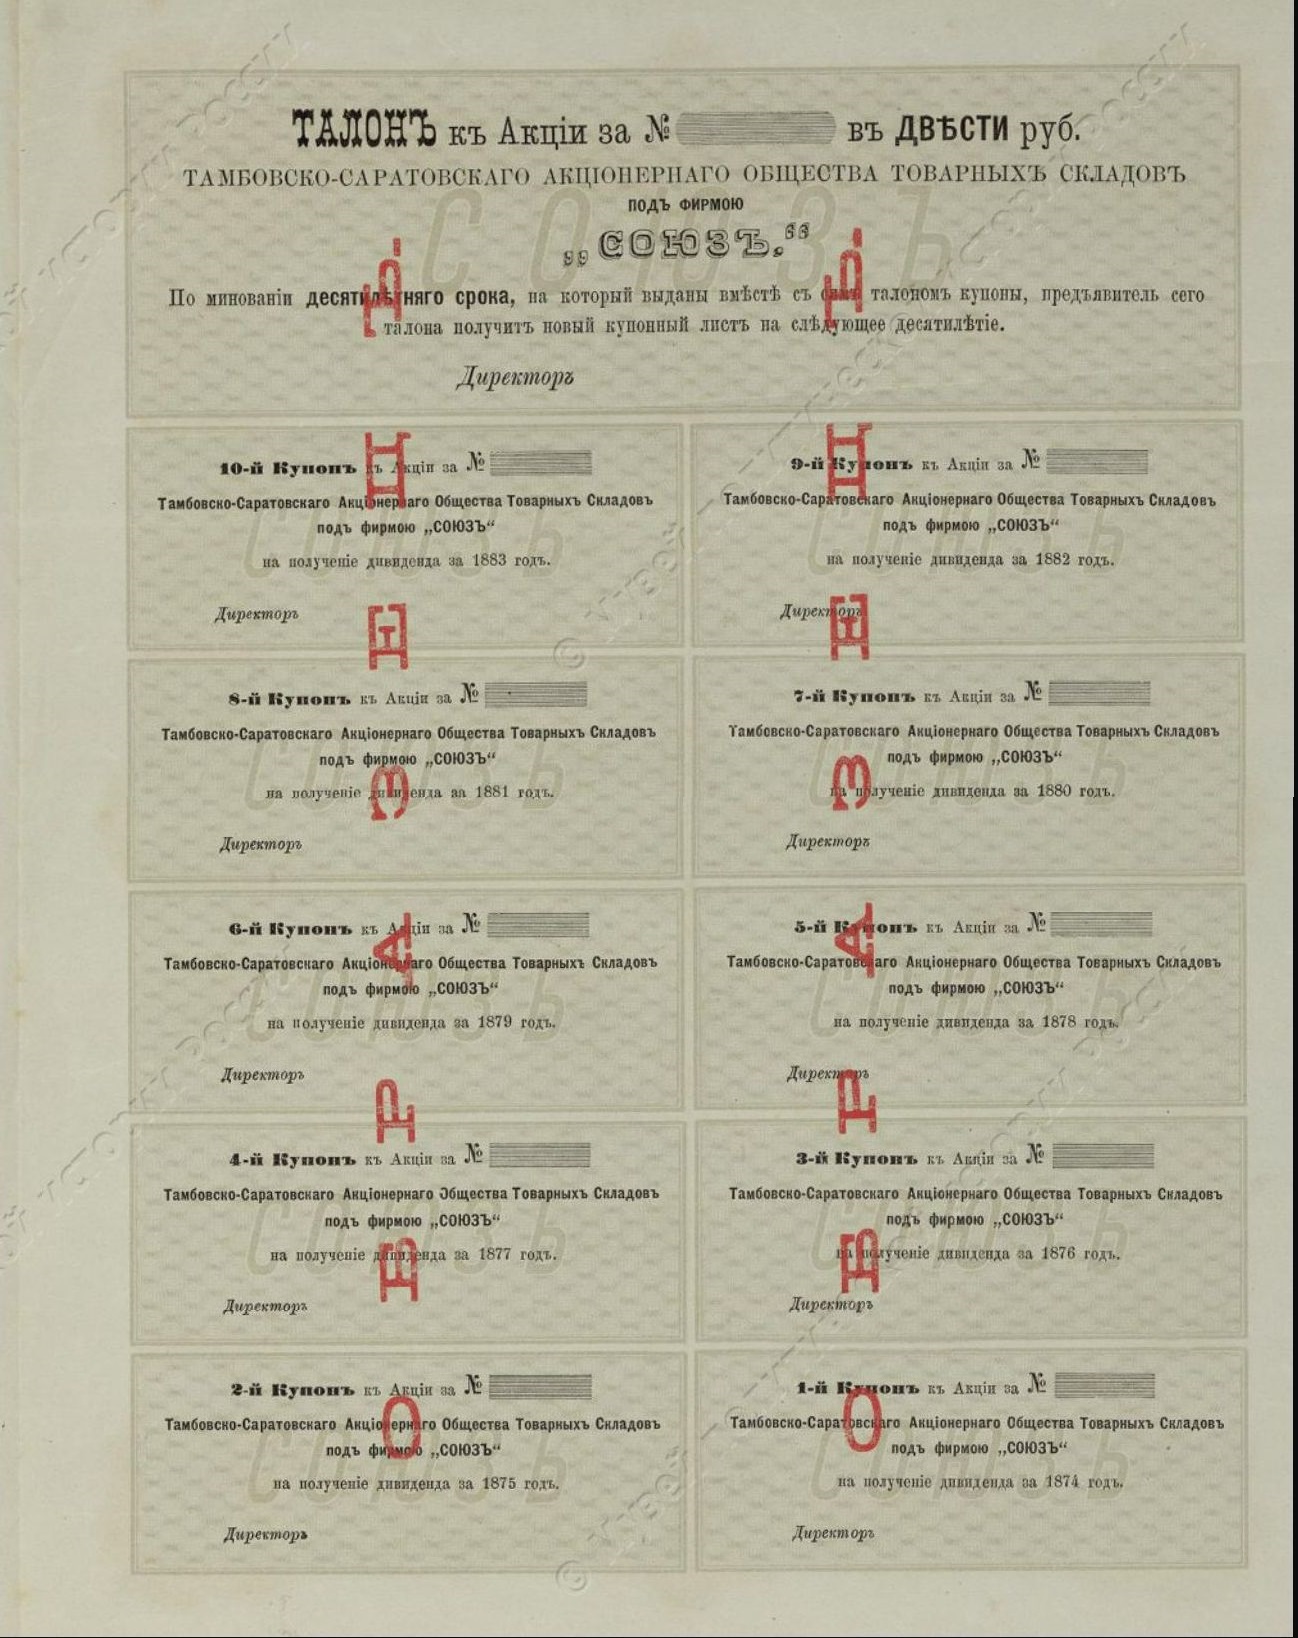 ТАЛОНЪ къ Акціи за № въ ДВѢСТИ руб.
ТАМБОВСКО-САРАТОВСКАГО АКЦІОНЕРНАГО ОБЩЕСТВА ТОВАРНЫХЪ СКЛАДОВЪ
ПОДЪ ФИРМОЮ
„СОЮЗЪ.“
По минованіи десятилѣтняго срока, на который выданы вмѣстѣ съ симъ талономъ купоны, предъявитель сего
талона получитъ новый купонный листъ на слѣдующее десятилѣтіе.
Директоръ
10-й Купонъ къ Акціи за №
Тамбовско-Саратовскаго Акціонернаго Общества Товарныхъ Складовъ
подъ фирмою „СОЮЗЪ“
на полученіе дивиденда за 1883 годъ.
Директоръ
9-й Купонъ къ Акціи за №
Тамбовско-Саратовскаго Акціонернаго Общества Товарныхъ Складовъ
подъ фирмою „СОЮЗЪ“
на полученіе дивиденда за 1882 годъ.
Директоръ
8-й Купонъ къ Акціи за №
Тамбовско-Саратовскаго Акціонернаго Общества Товарныхъ Складовъ
подъ фирмою „СОЮЗЪ“
на полученіе дивиденда за 1881 годъ.
Директоръ
7-й Купонъ къ Акціи за №
Тамбовско-Саратовскаго Акціонернаго Общества Товарныхъ Складовъ
подъ фирмою „СОЮЗЪ“
на полученіе дивиденда за 1880 годъ.
Директоръ
6-й Купонъ къ Акціи за №
Тамбовско-Саратовскаго Акціонернаго Общества Товарныхъ Складовъ
подъ фирмою „СОЮЗЪ“
на полученіе дивиденда за 1879 годъ.
Директоръ
5-й Купонъ къ Акціи за №
Тамбовско-Саратовскаго Акціонернаго Общества Товарныхъ Складовъ
подъ фирмою „СОЮЗЪ“
на полученіе дивиденда за 1878 годъ.
Директоръ
4-й Купонъ къ Акціи за №
Тамбовско-Саратовскаго Акціонернаго Общества Товарныхъ Складовъ
подъ фирмою „СОЮЗЪ“
на полученіе дивиденда за 1877 годъ.
Директоръ
3-й Купонъ къ Акціи за №
Тамбовско-Саратовскаго Акціонернаго Общества Товарныхъ Складовъ
подъ фирмою „СОЮЗЪ“
на полученіе дивиденда за 1876 годъ.
Директоръ
2-й Купонъ къ Акціи за №
Тамбовско-Саратовскаго Акціонернаго Общества Товарныхъ Складовъ
подъ фирмою „СОЮЗЪ“
на полученіе дивиденда за 1875 годъ.
Директоръ
1-й Купонъ къ Акціи за №
Тамбовско-Саратовскаго Акціонернаго Общества Товарныхъ Складовъ
подъ фирмою „СОЮЗЪ“
на полученіе дивиденда за 1874 годъ.
Директоръ